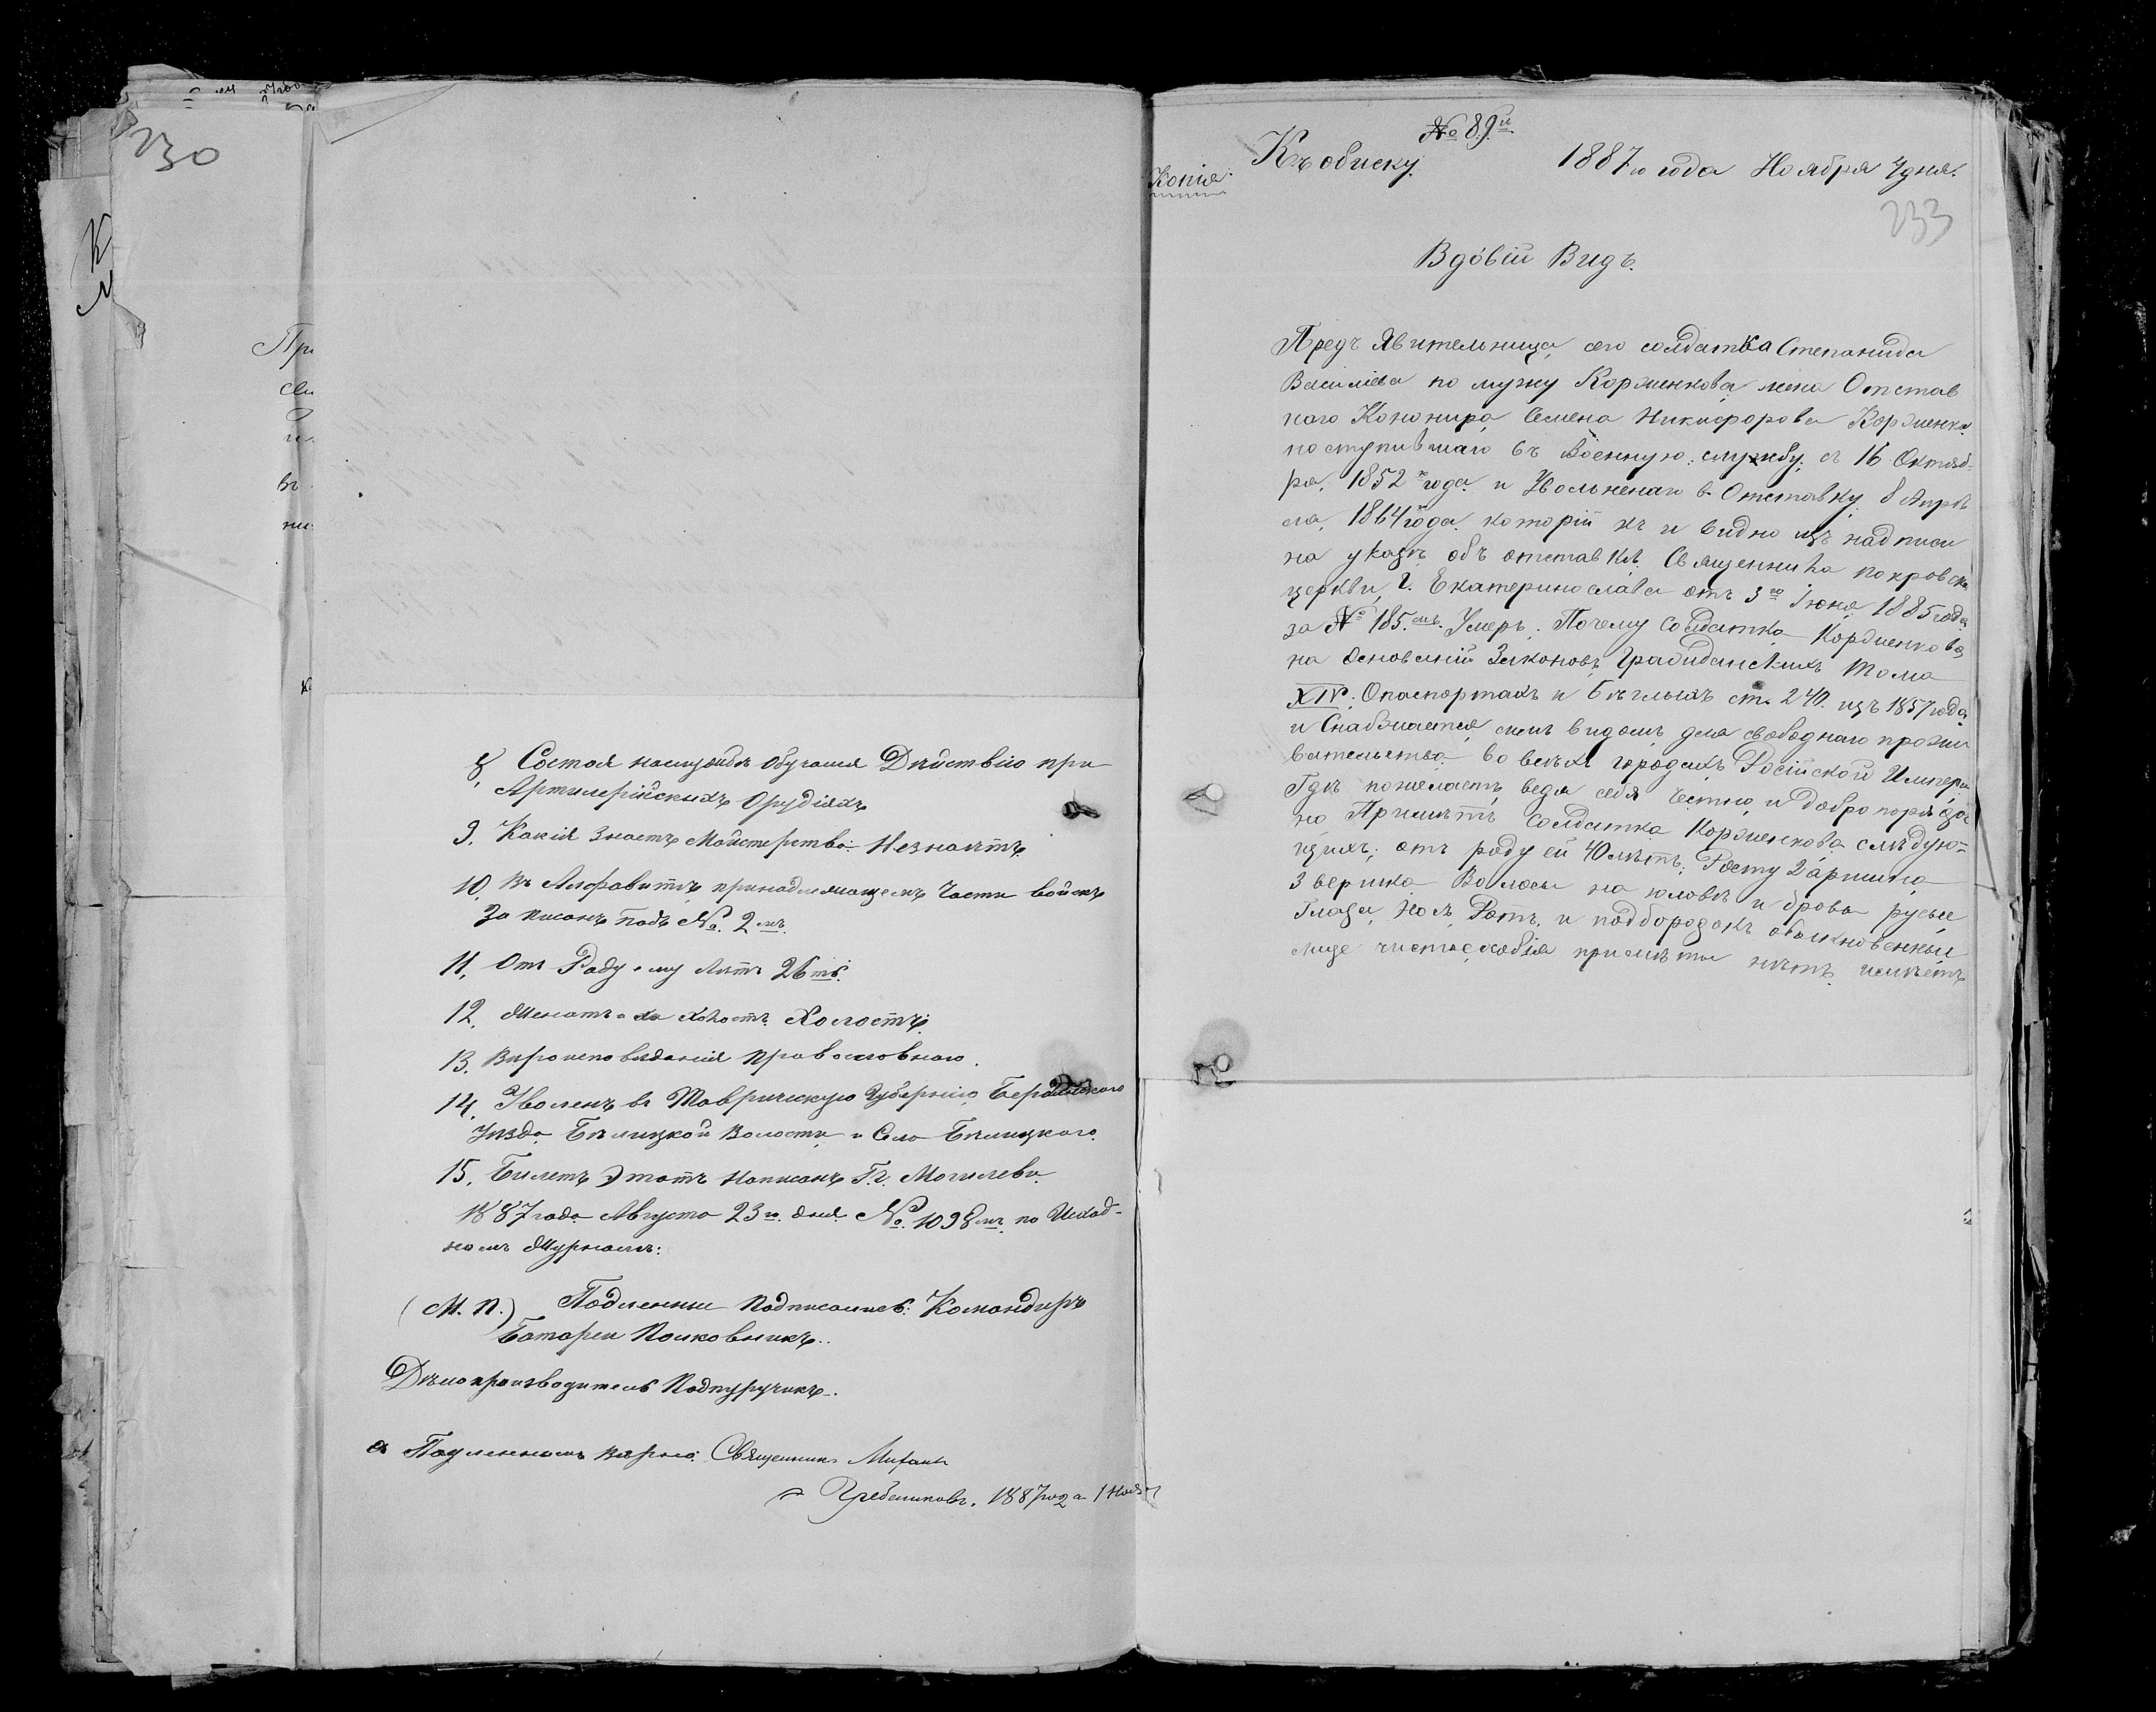 230
8, Состоя на службѣ обучался Дѣйствію при
Артилерійскихъ Орудіяхъ
9. Какія знаетъ Мастерства: Незнаетъ
10, Въ Алфавитѣ принадлежащемъ Части войскъ
Записанъ подъ №. 2мъ.
11, Отъ Роду ему Лѣтъ 26ть.
12, Женатъ или холостъ Холостъ
13, Вѣроисповѣданія православнаго.
14, Уволенъ въ Таврическую Губернію Бердянскаго
Уѣзда Бѣлицкой Волости и Село Бѣлицкаго.
15, Билетъ Этотъ написанъ Г. г. Могилевѣ
1887 года Августа 23го дня № 1098мъ по Исход-
номъ Журнале:
(М. П.) Подленный подписалъ: Командиръ
Батареи Полковникъ..
Дѣлопроизводитель Подпуручикъ.
съ Подленнымъ вѣрно: Священникъ Михаилъ
Гребениковъ. 1887 года 1 Ноя
№ 89й
Къ обиску 1887го года Ноября 4 дня.
Копія:
233
Вдовій Видъ.
Предъявительница сего солдатка Степанида
Василіева по мужу Кордиенкова жена Отстав
наго Канонира Семена Никифорова Кордиенка
поступившаго въ Военную службу съ 16 Октяб-
ря 1852го года и Уволненаго в Отставку 8 Апрѣ
ля 1864го года который какъ и видно изъ надписи
на указѣ объ отставкѣ Священника покровска
церкви г. Екатеринослава отъ 3го Іюня 1885 года
за № 185.мъ Умеръ. Почему Солдатка Кордиенкова
на Основаніи Законовъ Гражданскихъ Тома
XIV. Опаспортахъ и бѣглыхъ ст. 240. изъ 1857 года
и Снабжается симъ видомъ для свободнаго прожи
вательства во всѣхъ городахъ Російской Импери
Гдѣ пожелаетъ ведя себя честно и добропорядоч
но Примѣтъ Солдатка Кордиенкова слѣдую-
щихъ: отъ роду ей 40 лѣтъ; Росту 2 аршина
3 вершка Волосы на головѣ и брови русые
Глаза, Носъ, Ротъ, и подбородокъ обыкновенный
лице чистые особія примѣты нѣтъ имѣетъ